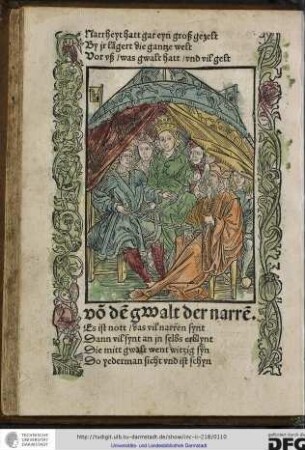 Narrheyt hatt gar eyn groß gezelt
By jr lägert die gantze welt
Vor vß / was gwalt hatt / vnd vil gelt
võ dē gwalt der narrē.
Es ist nott / das vil narren synt
Dann vil synt an jn selbs erblynt
Die mitt gwalt went witzig syn
So yederman sicht vnd ist schyn
http://tudigit.ulb.tu-darmstadt.de/show/inc-ii-218/0110
Universitäts- und Landesbibliothek Darmstadt
DFG